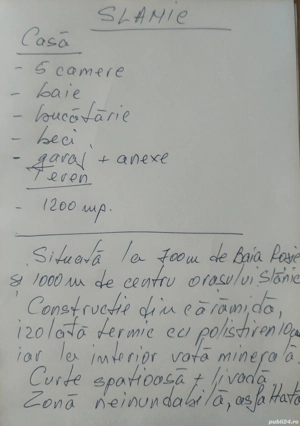 SLANIC
Casă
- 5 camere
- baie
- bucătărie
- beci
- garaj + anexe
Teren
- 1200 mp.
Situată la 700m de Baia Roșie
și 1000m de centru orașului Slănic
Construcție din cărămidă,
izolată termic cu polistiren 10cm
iar la interior vată minerală
Curte spațioasă + livadă
Zonă neinundabilă, asfaltată
publi24.ro